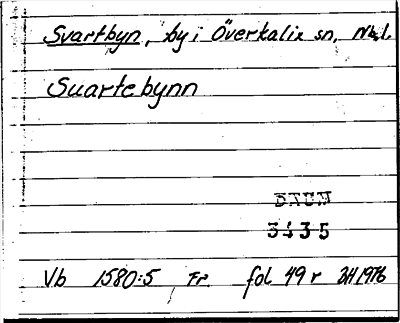 Svartbyn, by i Överkalix sn, Nb.l.
Suartebynn
DAUM
3435
Vb 1580:5 Fr fol 49 r 1976